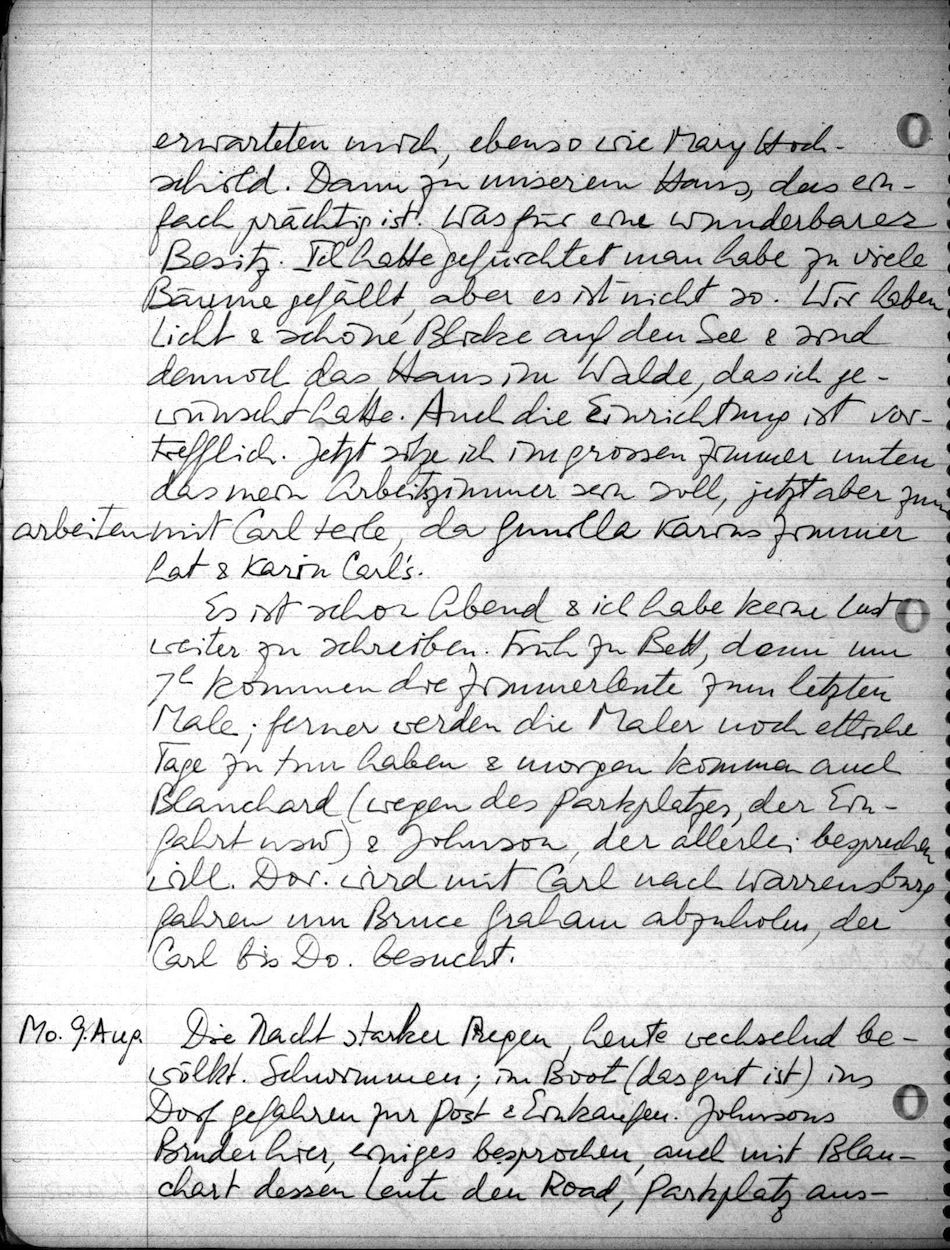 erwarteten mich, ebenso wie Mary Hoch-
schild. Dann zu unserem Haus, das ein-
fach prächtig ist. Was für eine wunderbarer
Besitz. Ich hatte gefürchtet man habe zu viele
Bäume gefällt, aber es ist nicht so. Wir haben
Licht & schöne Blicke auf den See & sind
dennoch das Haus im Walde, das ich ge-
wünscht hatte. Auch die Einrichtung ist vor-
trefflich. Jetzt sitze ich im grossen Zimmer unten
das mein Arbeitszimmer sein soll, jetzt aber zum
arbeiten mit Carl teile, da Gunilla Karins Zimmer
hat & Karin Carl's.
Es ist schon Abend & ich habe keine Lust
weiter zu schreiben. Früh zu Bett, denn um
7h kommen die Zimmerleute zum letzten
Male; ferner werden die Maler noch etliche
Tage zu tun haben & morgen kommen auch
Blanchard (wegen des Parkplatzes, der Ein-
fahrt usw) & Johnson, der allerlei besprechen
will. Dor. wird mit Carl nach Warrensburg
fahren um Bruce Graham abzuholen, der
Carl bis Do. besucht.
Mo. 9. Aug. Die Nacht starker Regen, heute wechselnd be-
wölkt. Schwimmen; im Boot (das gut ist) ins
Dorf gefahren zur Post & Einkaufen. Johnsons
Bruder hier, einiges besprochen, auch mit Blan-
chart dessen Leute den Road, Parkplatz aus-